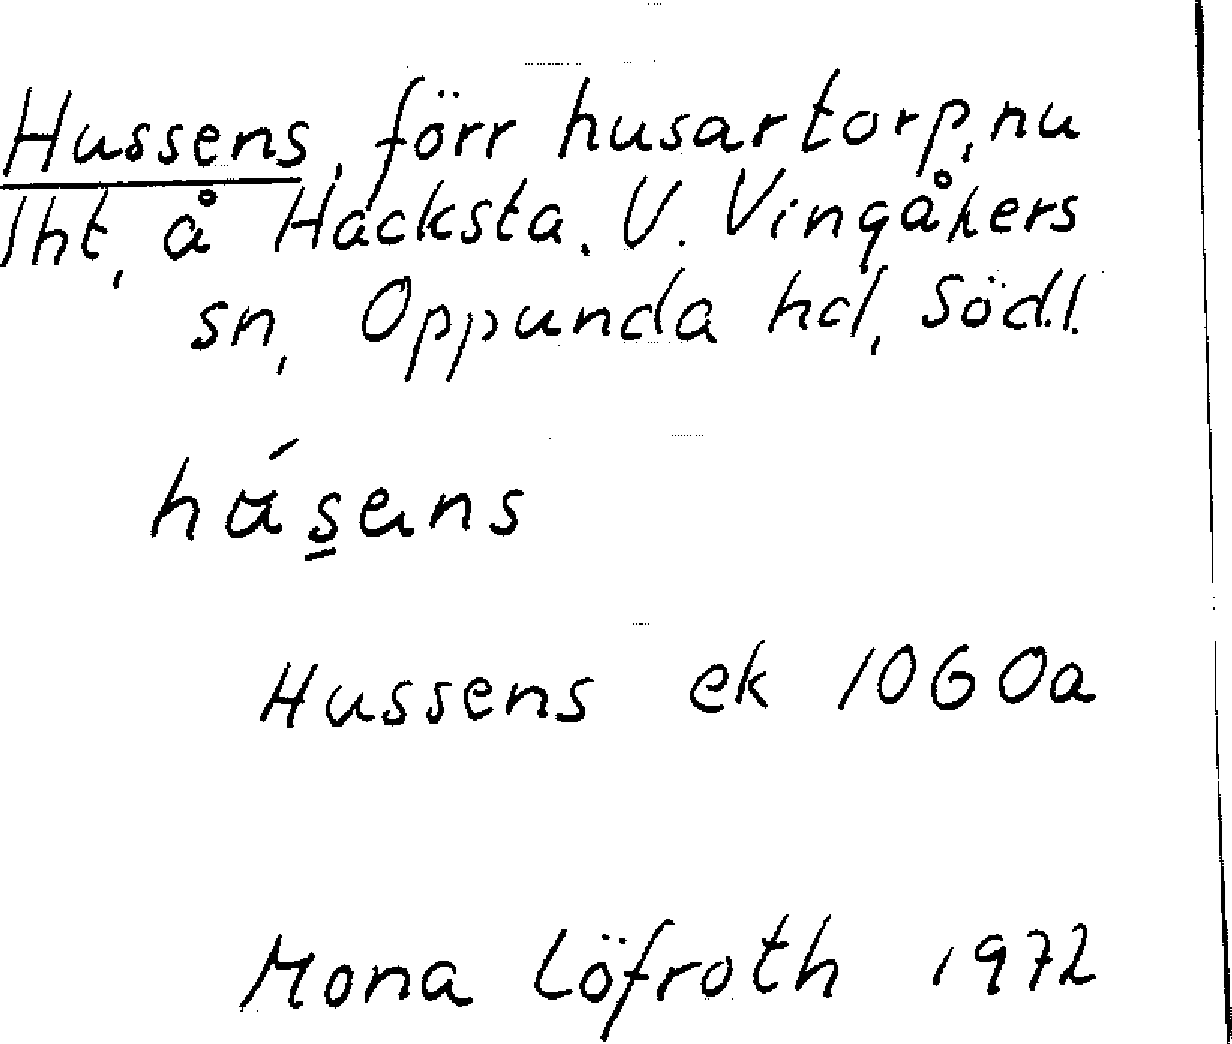 Hussens, förr husartorp, nu
lht, å Hacksta. V. Vingåkers
sn, Oppunda hd, Södl.
hús̲ens
Hussens ek 10G 0a
Mona Löfroth 1972